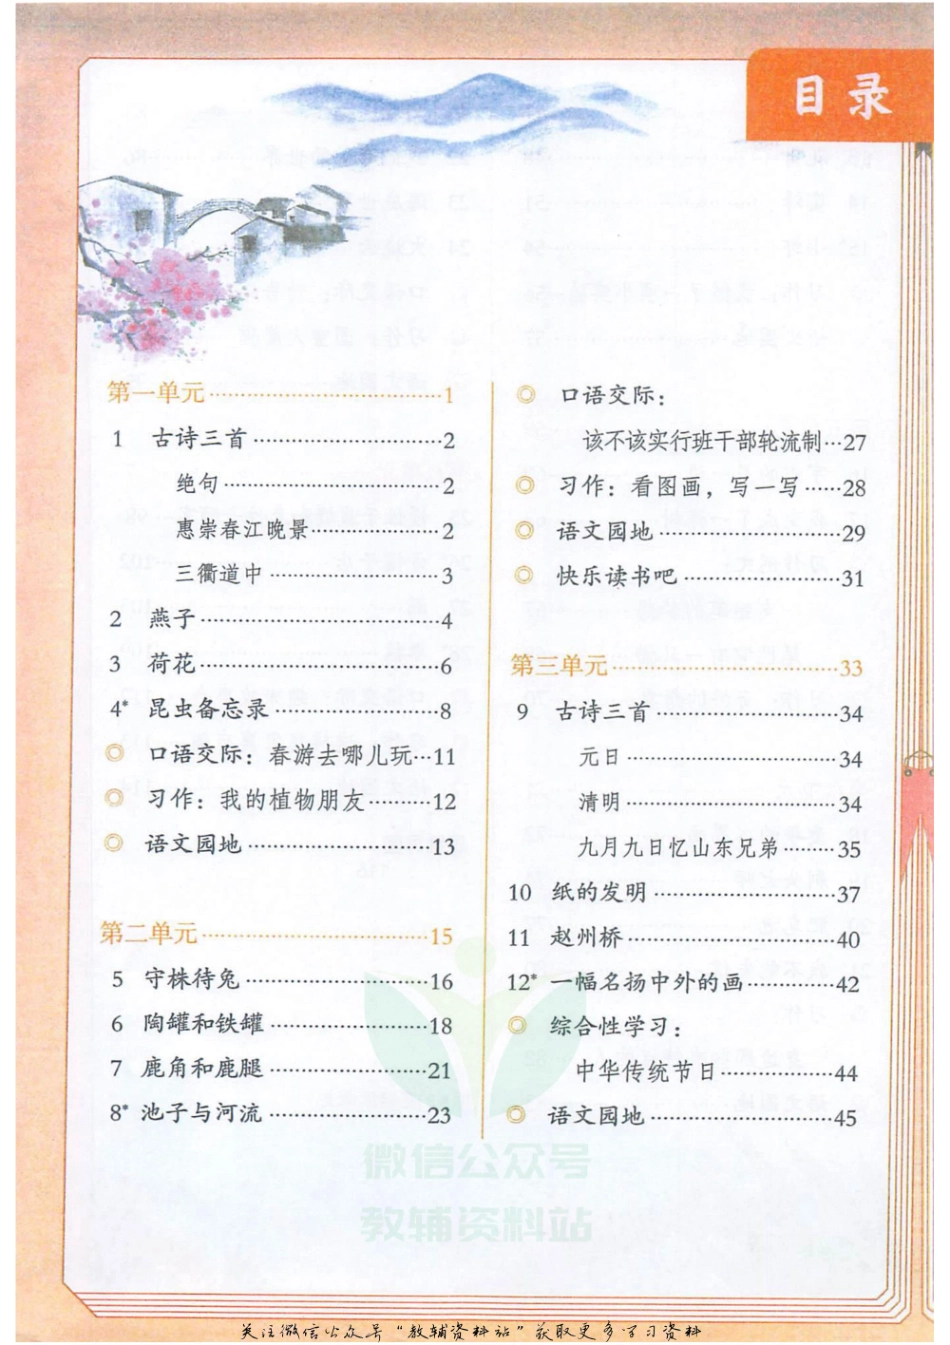 目录
第一单元……1
1 古诗三首……2
绝句……2
惠崇春江晚景……2
三衢道中……3
2 燕子……4
3 荷花……6
4* 昆虫备忘录……8
◎ 口语交际：春游去哪儿玩…11
◎ 习作：我的植物朋友……12
◎ 语文园地……13
第二单元……15
5 守株待兔……16
6 陶罐和铁罐……18
7 鹿角和鹿腿……21
8* 池子与河流……23
◎ 口语交际：
该不该实行班干部轮流制…27
◎ 习作：看图画，写一写……28
◎ 语文园地……29
◎ 快乐读书吧……31
第三单元……33
9 古诗三首……34
元日……34
清明……34
九月九日忆山东兄弟……35
10 纸的发明……37
11 赵州桥……40
12* 一幅名扬中外的画……42
◎ 综合性学习：
中华传统节日……44
◎ 语文园地……45
微信公众号
教辅资料站
关注微信公众号“教辅资料站”获取更多学习资料